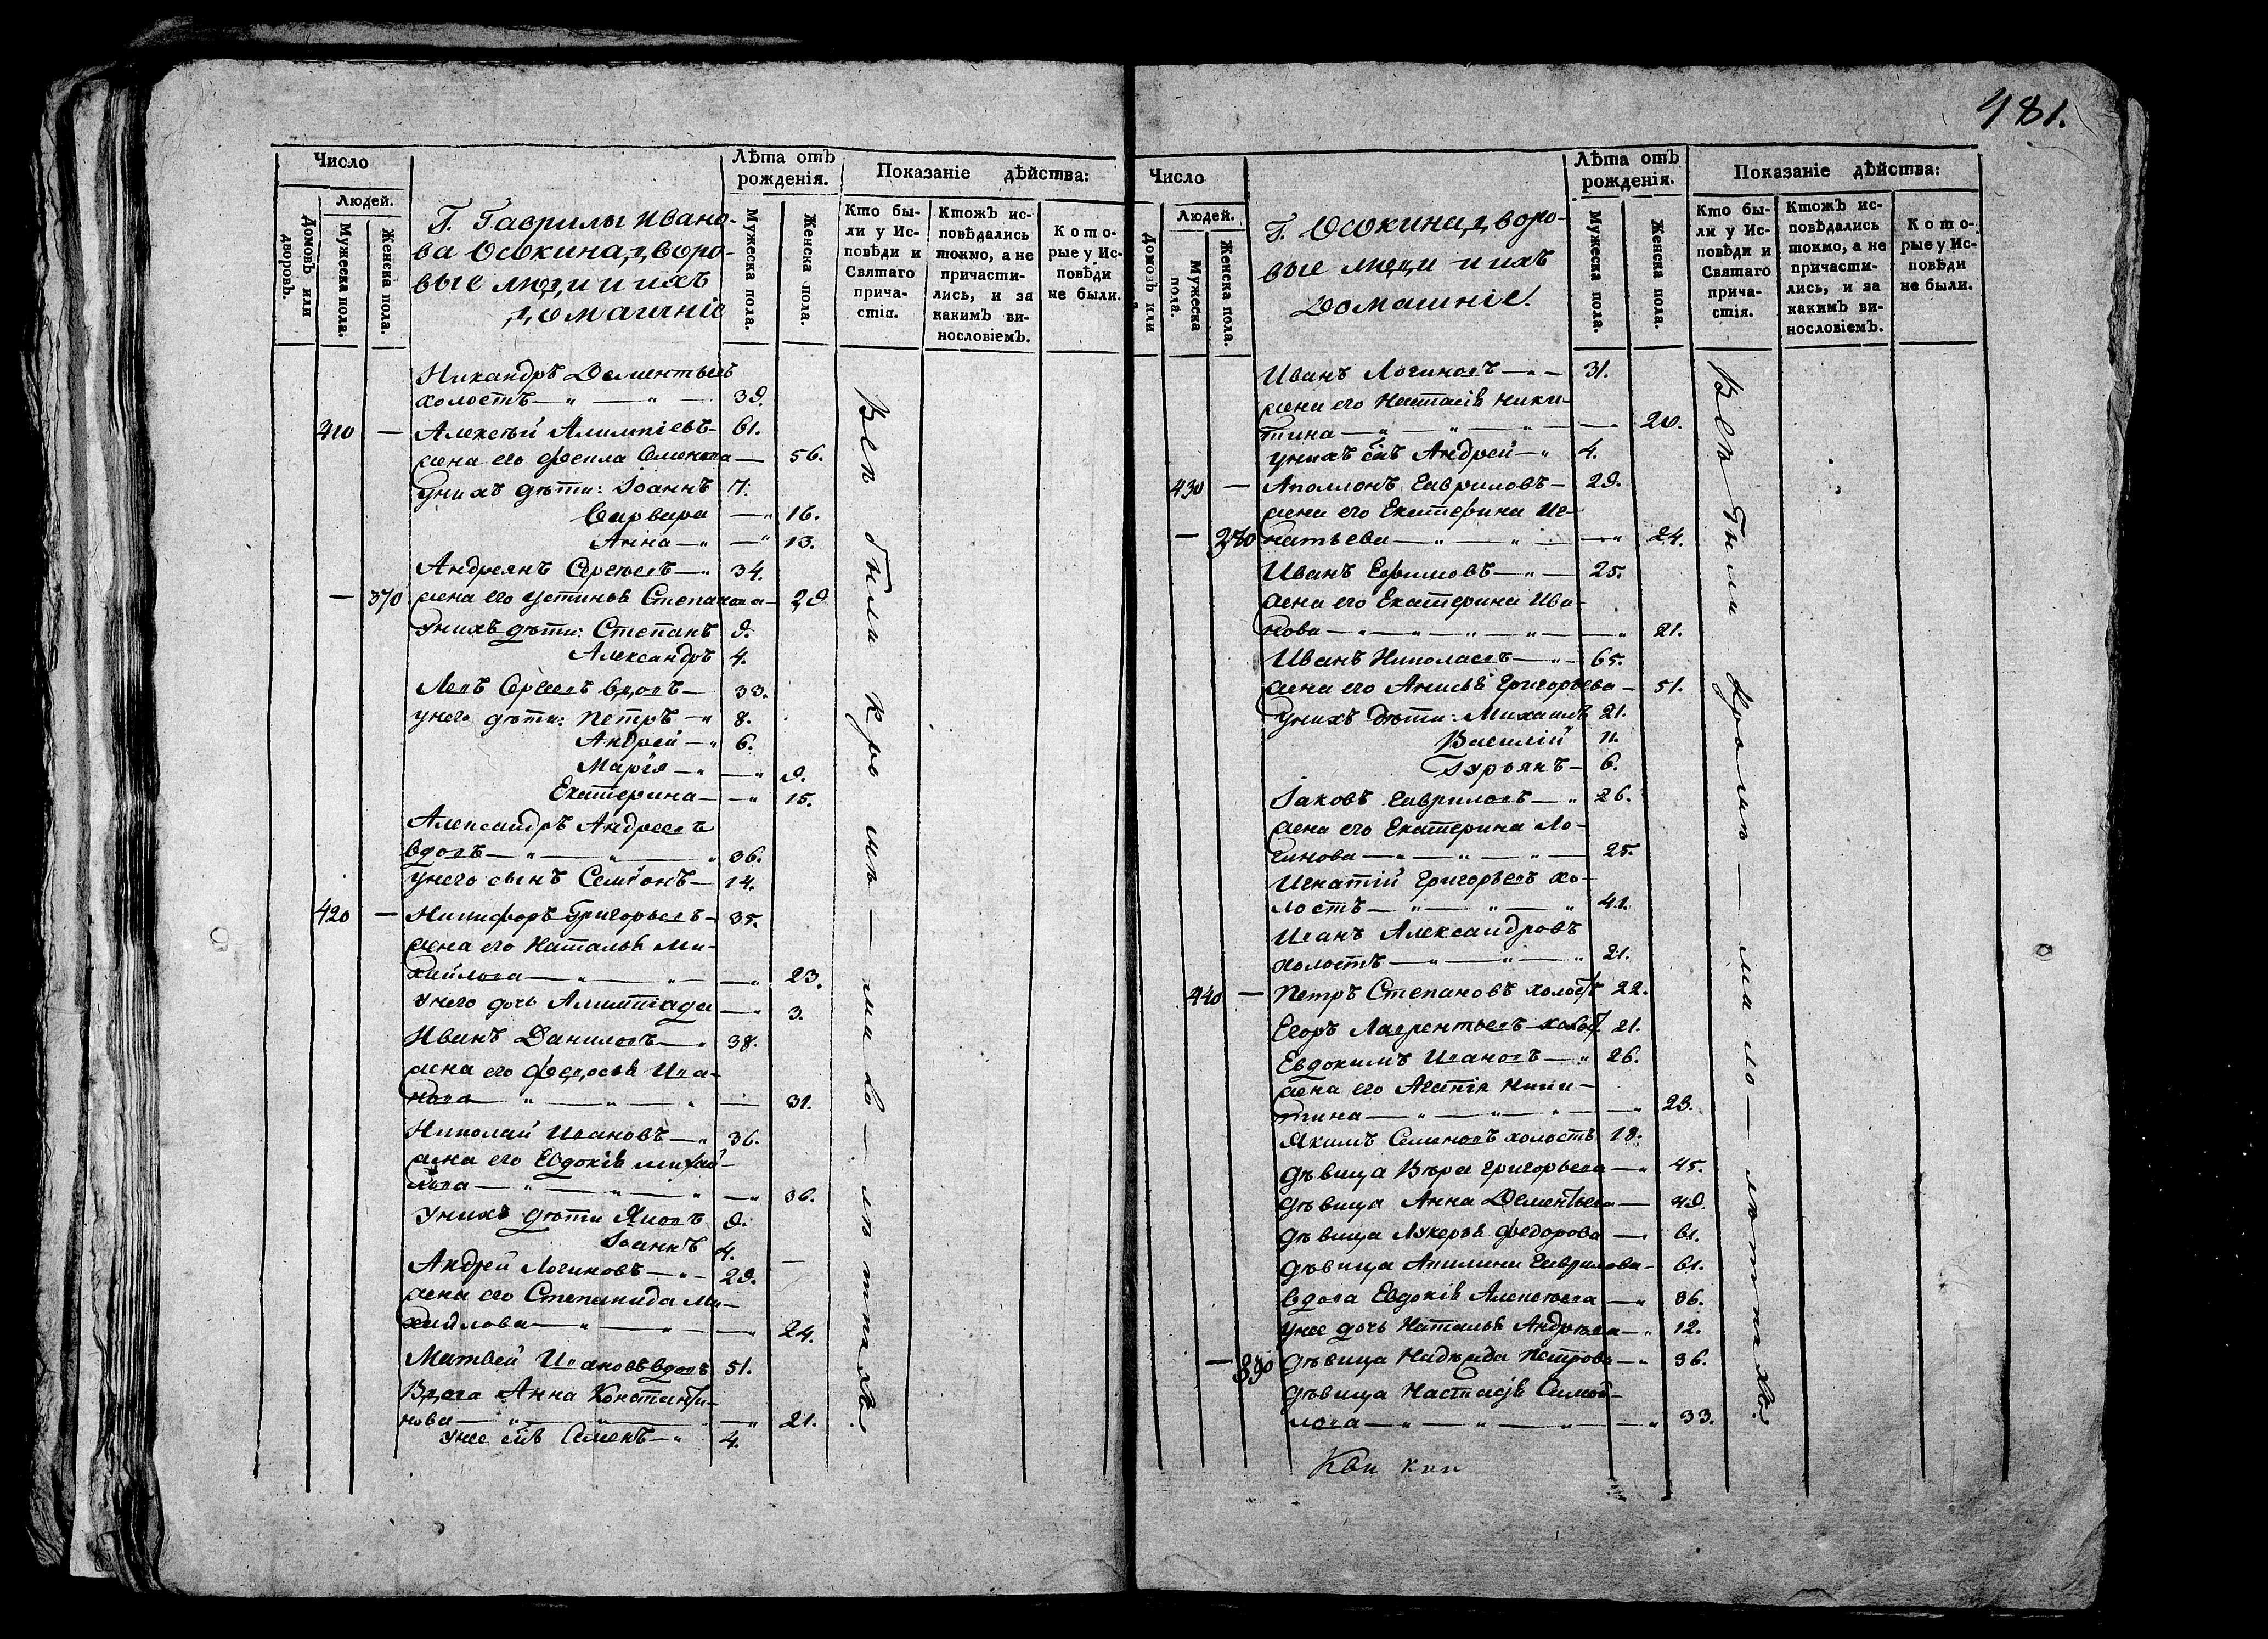 481.
Число
Людей.
Домовъ или дворовъ.
Мужеска пола.
Женска пола.
Г. Гаврилы Ивано-
ва Осокина, дворо-
вые люди и ихъ
домашніе
Лѣта отъ
рожденія.
Мужеска пола.
Женска пола.
Показаніе дѣйства:
Кто бы-
ли у Ис-
повѣди и
Святаго
прича-
стія.
Ктожъ ис-
повѣдались
токмо, а не
причасти-
лись, и за
какимъ ви-
нословіемъ.
Кото-
рые у Ис-
повѣди
не были.
Никандръ Дементьевъ
холостъ — 39.
410 — Алексѣй Алимпіевъ — 61.
жена его Фекла Семенова — 56.
у нихъ дѣти: Іоаннъ 7.
Варвара — 16.
Анна — 13.
Андреянъ Сергѣевъ — 34.
— 370 жена его Устинья Степанова — 29
у нихъ дѣти: Степанъ 9.
Александръ 4.
Левъ Сергѣевъ вдовъ — 33.
у него дѣти: Петръ — 8.
Андрей — 6.
Марія — 9.
Екатерина — 15.
Александръ Андреевъ
вдовъ — 36.
у него сынъ Семіонъ — 14.
420 — Никифоръ Григорьевъ — 35.
жена его Наталья Ми-
хайлова — 23.
у него дочь Алимпіада — 3.
Иванъ Даниловъ — 38.
жена его Федосья Ива-
нова — 31.
Николай Ивановъ — 36.
жена его Евдокія Михай-
лова — 36.
у нихъ дѣти Яковъ 9.
Іоаннъ 4.
Андрей Логиновъ — 29.
жена его Степанида Ми-
хайлова — 24.
Матвей Ивановъ вдовъ 51.
Вдова Анна Константи-
нова — 21.
у нее сынъ Семенъ — 4.
Всѣ были кромѣ — мало — лѣтнихъ.
Число
Людей.
Домовъ или
Мужеска пола.
Женска пола.
Г. Осокина, дворо-
вые люди и ихъ
домашніе.
Лѣта отъ
рожденія.
Мужеска пола.
Женска пола.
Показаніе дѣйства:
Кто бы-
ли у Ис-
повѣди и
Святаго
прича-
стія.
Ктожъ ис-
повѣдались
токмо, а не
причасти-
лись, и за
какимъ ви-
нословіемъ.
Кото-
рые у Ис-
повѣди
не были.
Иванъ Логиновъ — 31.
жена его Настасія Ники-
тина — 20.
у нихъ сынъ Андрей — 4.
430 — Аполлонъ Гавриловъ — 29.
жена его Екатерина Иг-
— 380 натьева — 24.
Иванъ Ефимовъ — 25.
жена его Екатерина Ива-
нова — 21.
Иванъ Николаевъ — 65.
жена его Анисья Григорьева — 51.
у нихъ дѣти: Михаилъ 21.
Василій 11.
Гурьянъ — 6.
Іаковъ Гавриловъ — 26.
жена его Екатерина Ло-
гинова — 25.
Игнатій Григорьевъ хо-
лостъ — 41.
Иванъ Александровъ
холостъ — 21.
440 — Петръ Степановъ холостъ 22.
Егоръ Лаврентьевъ холост 21.
Евдокимъ Ивановъ — 26.
жена его Агапія Ники-
тина — 23.
Якимъ Семеновъ холостъ 18.
дѣвица Вѣра Григорьева — 45.
дѣвица Анна Дементьева — 49.
дѣвица Лукерья Федорова — 61.
дѣвица Акилина Гаврилова — 61.
вдова Евдокія Алексѣева — 36.
у нее дочь Наталья Андрѣева — 12.
— 390 дѣвица Надежда Петрова — 36.
дѣвица Настасія Самой-
лова — 33.
Всѣ были кромѣ — мало — лѣтнихъ.